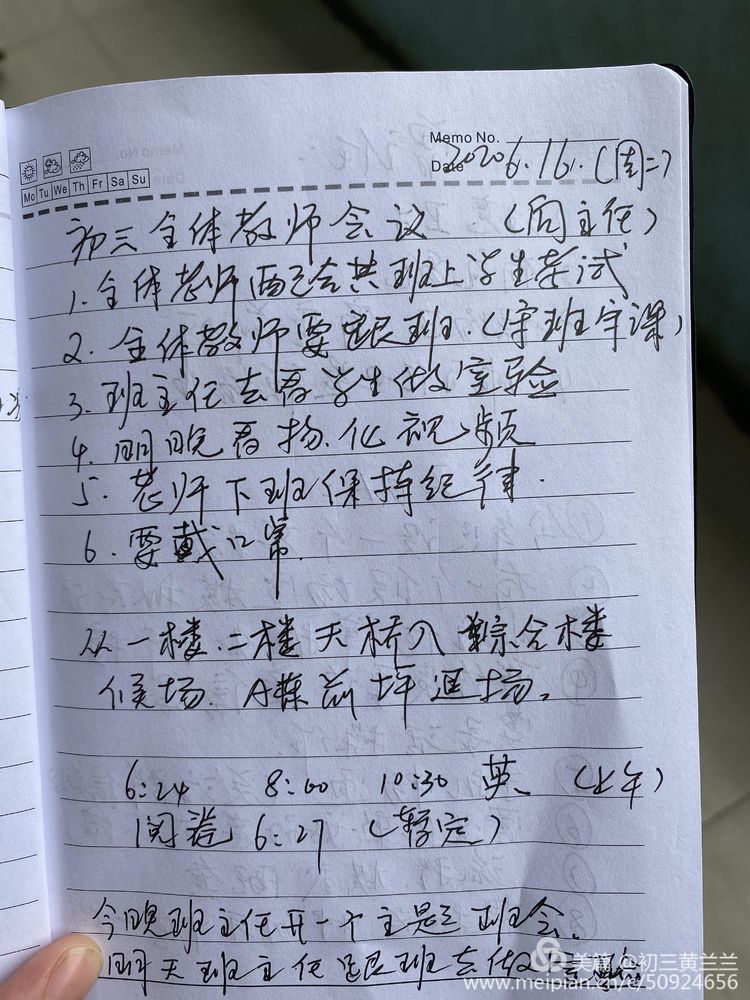 Memo No.
Date 2020.6.16.(周二)
Mo Tu We Th Fr Sa Su
初三全体教师会议 (向主任)
1.全体老师配合其班上学生考试
2.全体教师要跟班.(守班守课)
3.班主任去看学生做实验
4.明晚看物.化视频
5.老师下班保持纪律.
6.要戴口常.
从一楼.二楼天桥入综合楼
候场.A栋前坪退场。
6:24 8:00 10:30 英、(上午)
阅卷 6:27 (暂定)
今晚班主任开一个主题班会、
明天班主任跟班去做实验
美篇 @初三黄兰兰
www.meipian.cn/c/50924656